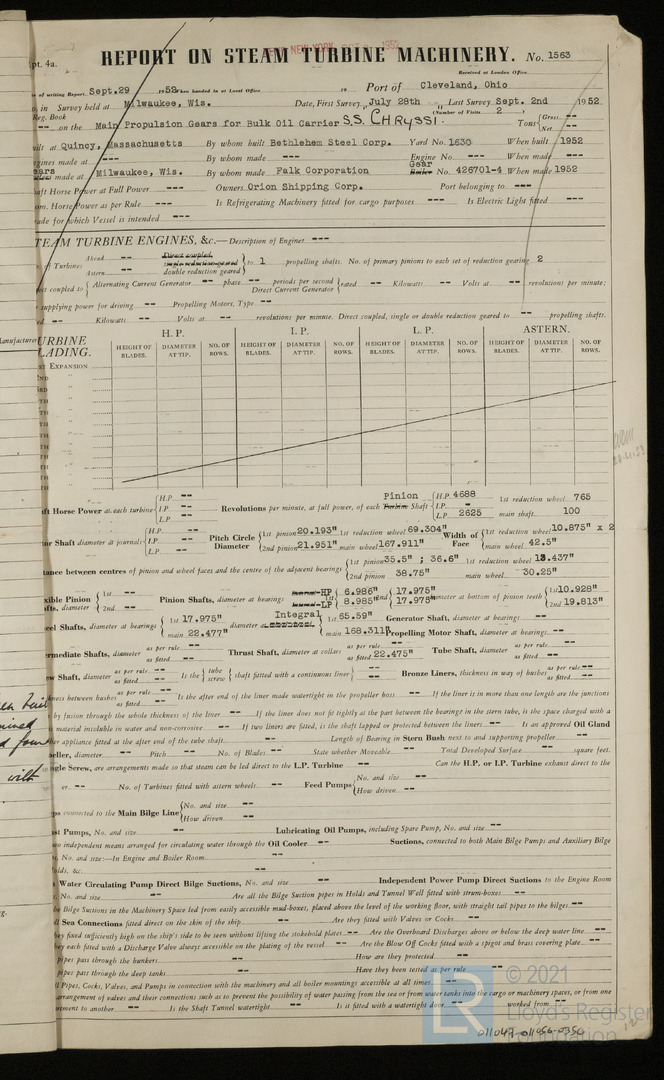 pt. 4a.
REPORT ON STEAM TURBINE MACHINERY. No. 1563
Received at London Office
of writing Report Sept.29 1952 When handed in at Local Office 19 Port of Cleveland, Ohio
o. in Survey held at Milwaukee, Wis. Date, First Survey July 28th Last Survey Sept. 2nd 1952
Reg. Book (Number of Visits 2)
-- on the Main Propulsion Gears for Bulk Oil Carrier S.S. CHRYSSI. Tons { Gross -- Net --
uilt at Quincy, Massachusetts By whom built Bethlehem Steel Corp. Yard No. 1630 When built 1952
ngines made at --- By whom made --- Engine No. --- When made ---
ears made at Milwaukee, Wis. By whom made Falk Corporation Gear Boiler No. 426701-4 When made 1952
haft Horse Power at Full Power --- Owners Orion Shipping Corp. Port belonging to ---
om. Horse Power as per Rule --- Is Refrigerating Machinery fitted for cargo purposes --- Is Electric Light fitted ---
ade for which Vessel is intended ---
TEAM TURBINE ENGINES, &c.—Description of Engines ---
. of Turbines Ahead -- Astern -- Direct coupled, single reduction geared double reduction geared } to 1 propelling shafts. No. of primary pinions to each set of reduction gearing 2
ect coupled to { Alternating Current Generator -- phase -- periods per second Direct Current Generator } rated -- Kilowatts -- Volts at -- revolutions per minute;
supplying power for driving -- Propelling Motors, Type --
ed -- Kilowatts -- Volts at -- revolutions per minute. Direct coupled, single or double reduction geared to -- propelling shafts.
Manufacturer
URBINE LADING. H. P. I. P. L. P. ASTERN.
HEIGHT OF BLADES. DIAMETER AT TIP. NO. OF ROWS. HEIGHT OF BLADES. DIAMETER AT TIP. NO. OF ROWS. HEIGHT OF BLADES. DIAMETER AT TIP. NO. OF ROWS. HEIGHT OF BLADES. DIAMETER AT TIP. NO. OF ROWS.
ST EXPANSION
ND
RD
TH
TH
TH
TH
TH
TH
aft Horse Power at each turbine { H.P. -- I.P. -- L.P. -- Revolutions per minute, at full power, of each Pinion Turbine Shaft { H.P. 4688 I.P. - L.P. 2625 1st reduction wheel 765 main shaft 100
tor Shaft diameter at journals { H.P. -- I.P. -- L.P. -- Pitch Circle Diameter { 1st pinion 20.193" 2nd pinion 21.951" 1st reduction wheel 69.304" main wheel 167.911" Width of Face { 1st reduction wheel 10.875" x 2 main wheel 42.5"
tance between centres of pinion and wheel faces and the centre of the adjacent bearings { 1st pinion 35.5" ; 36.6" 2nd pinion 38.75" 1st reduction wheel 13.437" main wheel 30.25"
xible Pinion afts, diameter { 1st -- 2nd -- Pinion Shafts, diameter at bearings HP LP 1st { 6.986" 8.985" 2nd { 17.975" 17.975" diameter at bottom of pinion teeth { 1st 10.928" 2nd 19.813"
eel Shafts, diameter at bearings { 1st 17.975" main 22.477" diameter at Integral { 1st 65.59" main 168.311" Generator Shaft, diameter at bearings -- Propelling Motor Shaft, diameter at bearings --
ermediate Shafts, diameter as per rule -- as fitted -- Thrust Shaft, diameter at collars as per rule -- as fitted 22.475" Tube Shaft, diameter as per rule -- as fitted --
ew Shaft, diameter as per rule -- as fitted -- Is the { tube screw } shaft fitted with a continuous liner { -- Bronze Liners, thickness in way of bushes as per rule -- as fitted --
kness between bushes as per rule -- as fitted -- Is the after end of the liner made watertight in the propeller boss -- If the liner is in more than one length are the junctions
by fusion through the whole thickness of the liner -- If the liner does not fit tightly at the part between the bearings in the stern tube, is the space charged with a
material insoluble in water and non-corrosive -- If two liners are fitted, is the shaft lapped or protected between the liners -- Is an approved Oil Gland
her appliance fitted at the after end of the tube shaft -- Length of Bearing in Stern Bush next to and supporting propeller --
peller, diameter -- Pitch -- No. of Blades -- State whether Moveable -- Total Developed Surface -- square feet.
ngle Screw, are arrangements made so that steam can be led direct to the L.P. Turbine -- Can the H.P. or I.P. Turbine exhaust direct to the
er -- No. of Turbines fitted with astern wheels -- Feed Pumps { No. and size -- How driven --
ps connected to the Main Bilge Line { No. and size -- How driven --
st Pumps, No. and size -- Lubricating Oil Pumps, including Spare Pump, No. and size --
wo independent means arranged for circulating water through the Oil Cooler -- Suctions, connected to both Main Bilge Pumps and Auxiliary Bilge
, No. and size:—In Engine and Boiler Room --
olds, &c. --
Water Circulating Pump Direct Bilge Suctions, No. and size -- Independent Power Pump Direct Suctions to the Engine Room
. No. and size -- Are all the Bilge Suction pipes in Holds and Tunnel Well fitted with strum-boxes --
he Bilge Suctions in the Machinery Space led from easily accessible mud-boxes, placed above the level of the working floor, with straight tail pipes to the bilges --
ll Sea Connections fitted direct on the skin of the ship -- Are they fitted with Valves or Cocks --
hey fixed sufficiently high on the ship's side to be seen without lifting the stokehold plates -- Are the Overboard Discharges above or below the deep water line --
hey each fitted with a Discharge Valve always accessible on the plating of the vessel -- Are the Blow Off Cocks fitted with a spigot and brass covering plate --
pipes pass through the bunkers -- How are they protected --
pipes pass through the deep tanks -- Have they been tested as per rule --
ll Pipes, Cocks, Valves, and Pumps in connection with the machinery and all boiler mountings accessible at all times --
arrangement of valves and their connections such as to prevent the possibility of water passing from the sea or from water tanks into the cargo or machinery spaces, or from one
rtment to another -- Is the Shaft Tunnel watertight -- Is it fitted with a watertight door -- worked from --
© 2021
LR
Lloyd's Register
Foundation
011049-011056-0356